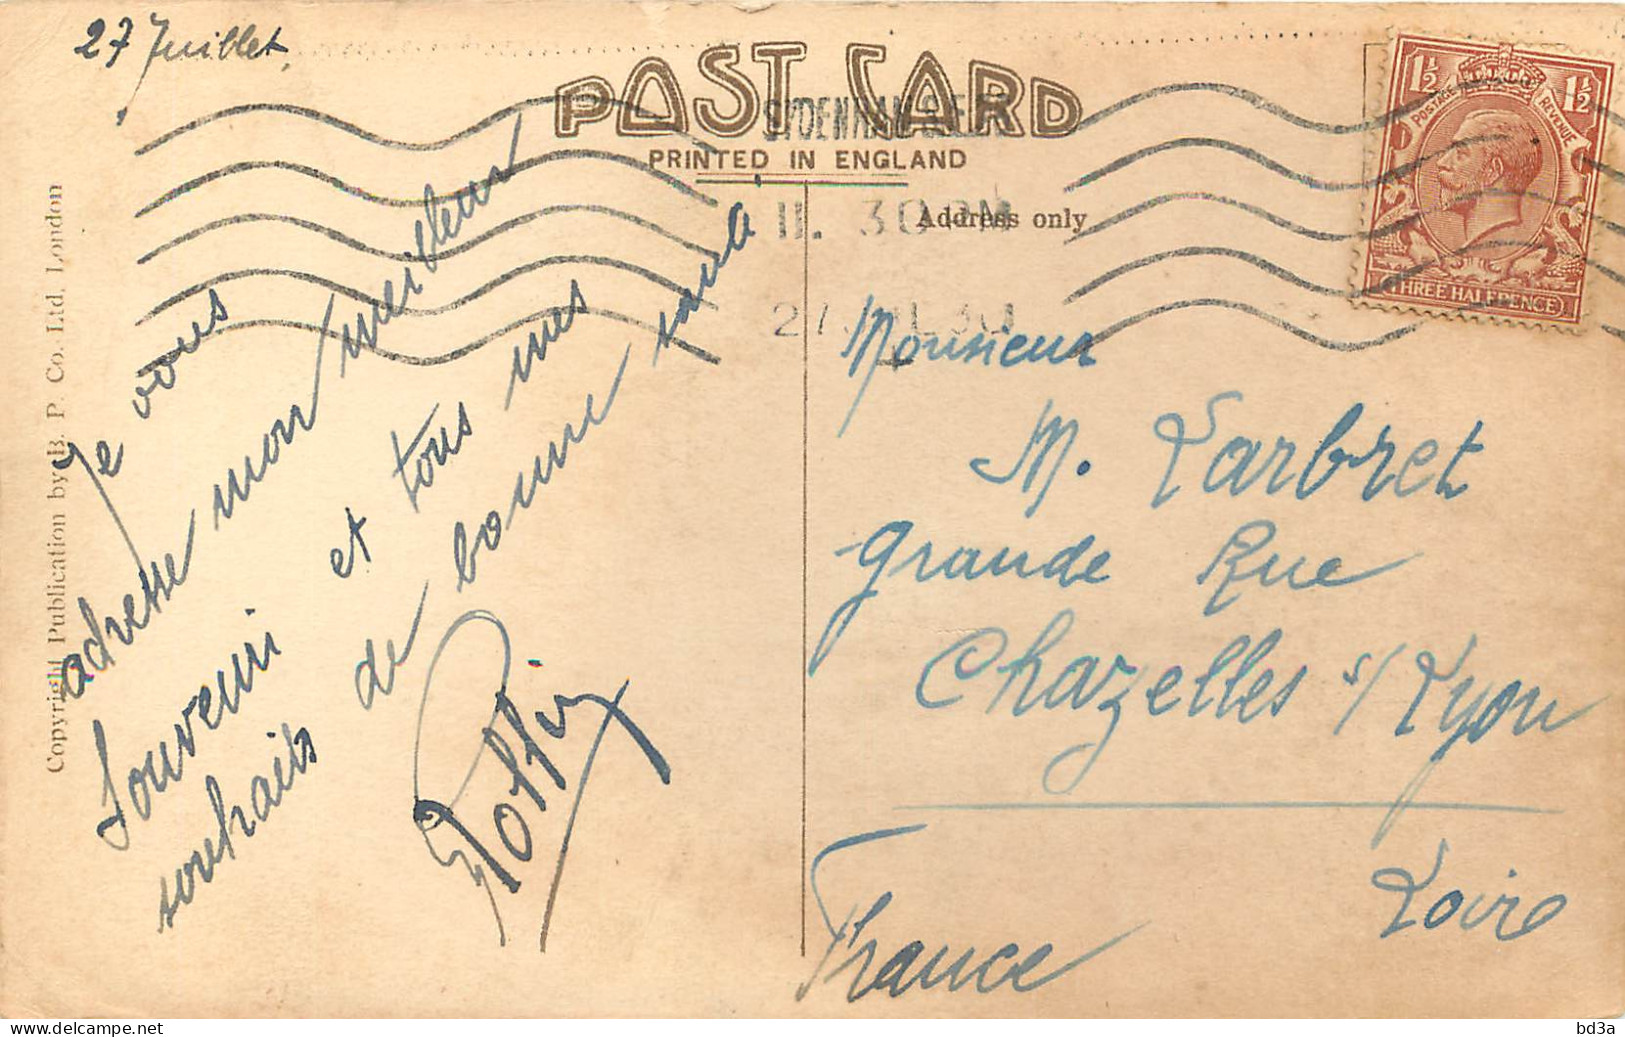 27 Juillet.
POST CARD
PRINTED IN ENGLAND
SYDENHAM S.E.26
11. 30 PM
27 JUL 30
Address only
1½ 1½
POSTAGE REVENUE
THREE HALFPENCE
Copyright Publication by B. P. Co. Ltd. London
Je vous
adresse mon meilleur
Souvenir et tous mes
souhaits de bonne santé
Monsieur
M. Larbret
Grande Rue
Chazelles s/ Lyon
Loire
France
bd3a